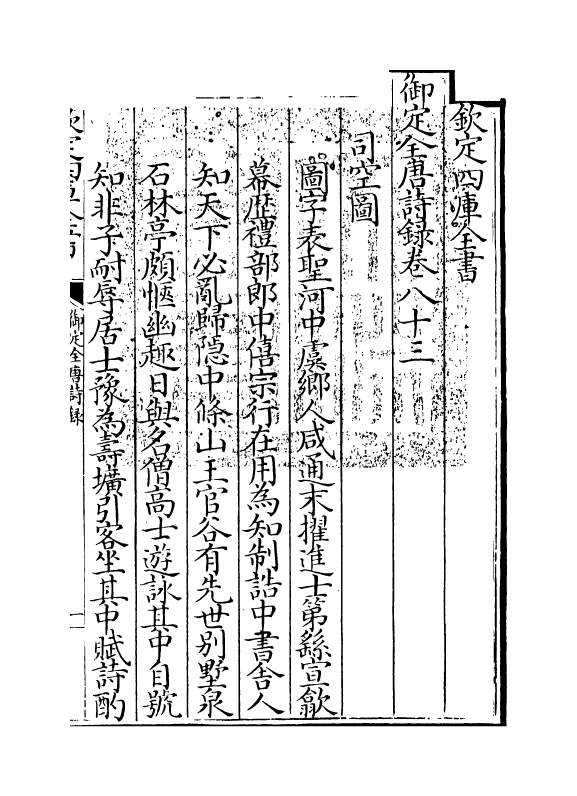 欽定四庫全書
御定全唐詩録卷八十三
司空圖
圖字表聖河中虞鄉人咸通末擢進士第繇宣歙
幕歴禮部郎中僖宗行在用為知制誥中書舍人
知天下必亂歸隠中條山王官谷有先世别墅泉
石林亭頗愜幽趣日與名僧高士遊詠其中自號
知非子耐辱居士豫為壽壙引客坐其中賦詩酌
御定全唐詩録
一